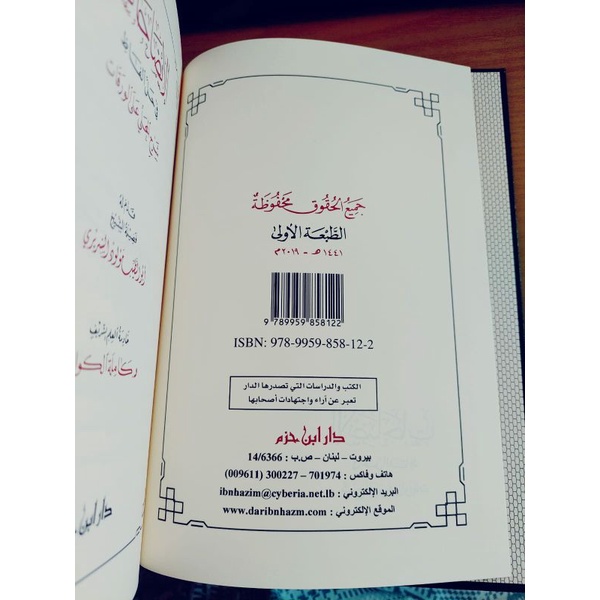 جَمِيعُ الحُقُوقِ مَحْفُوظَةٌ
الطَّبْعَة الأولى
١٤٤١ هـ - ٢٠١٩ م
9 789959 858122
ISBN: 978-9959-858-12-2
الكتب والدراسات التي تصدرها الدار
تعبر عن آراء واجتهادات أصحابها
دار ابن حزم
بيروت – لبنان – ص.ب : 14/6366
هاتف وفاكس : 701974 – 300227 (009611)
البريد الإلكتروني : ibnhazim@cyberia.net.lb
الموقع الإلكتروني : www.daribnhazm.com
فضيلة الشيخ
مولود السريري
دار ابن